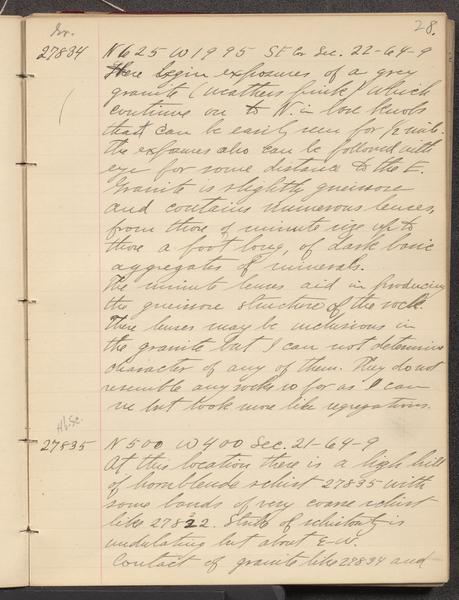 28.
Gr.
27834 N625 W1995 SE Cor Sec. 22-64-9
Here begin exposures of a grey
granite (weathers pink) which
continue on to N. in low knobs
that can be easily seen for 1/2 mile.
The exposures also can be followed with
eye for some distance to the E.
Granite is slightly gneissose
and contains numerous lenses,
from those of minute size up to
those a foot long, of dark basic
aggregates of minerals.
The minute lenses aid in producing
the gneissose structure of the rock.
These lenses may be inclusions in
the granite but I can not determine
character of any of them. They do not
resemble any rocks so far as I can
see but look more like segregations.
Hb. Sc.
27835 N500 W400 Sec. 21-64-9
At this location there is a high hill
of hornblende schist 27835 with
some bands of very coarse schist
like 27822. Strike of schistosity is
undulating but about E-W.
Contact of granite like 27834 and